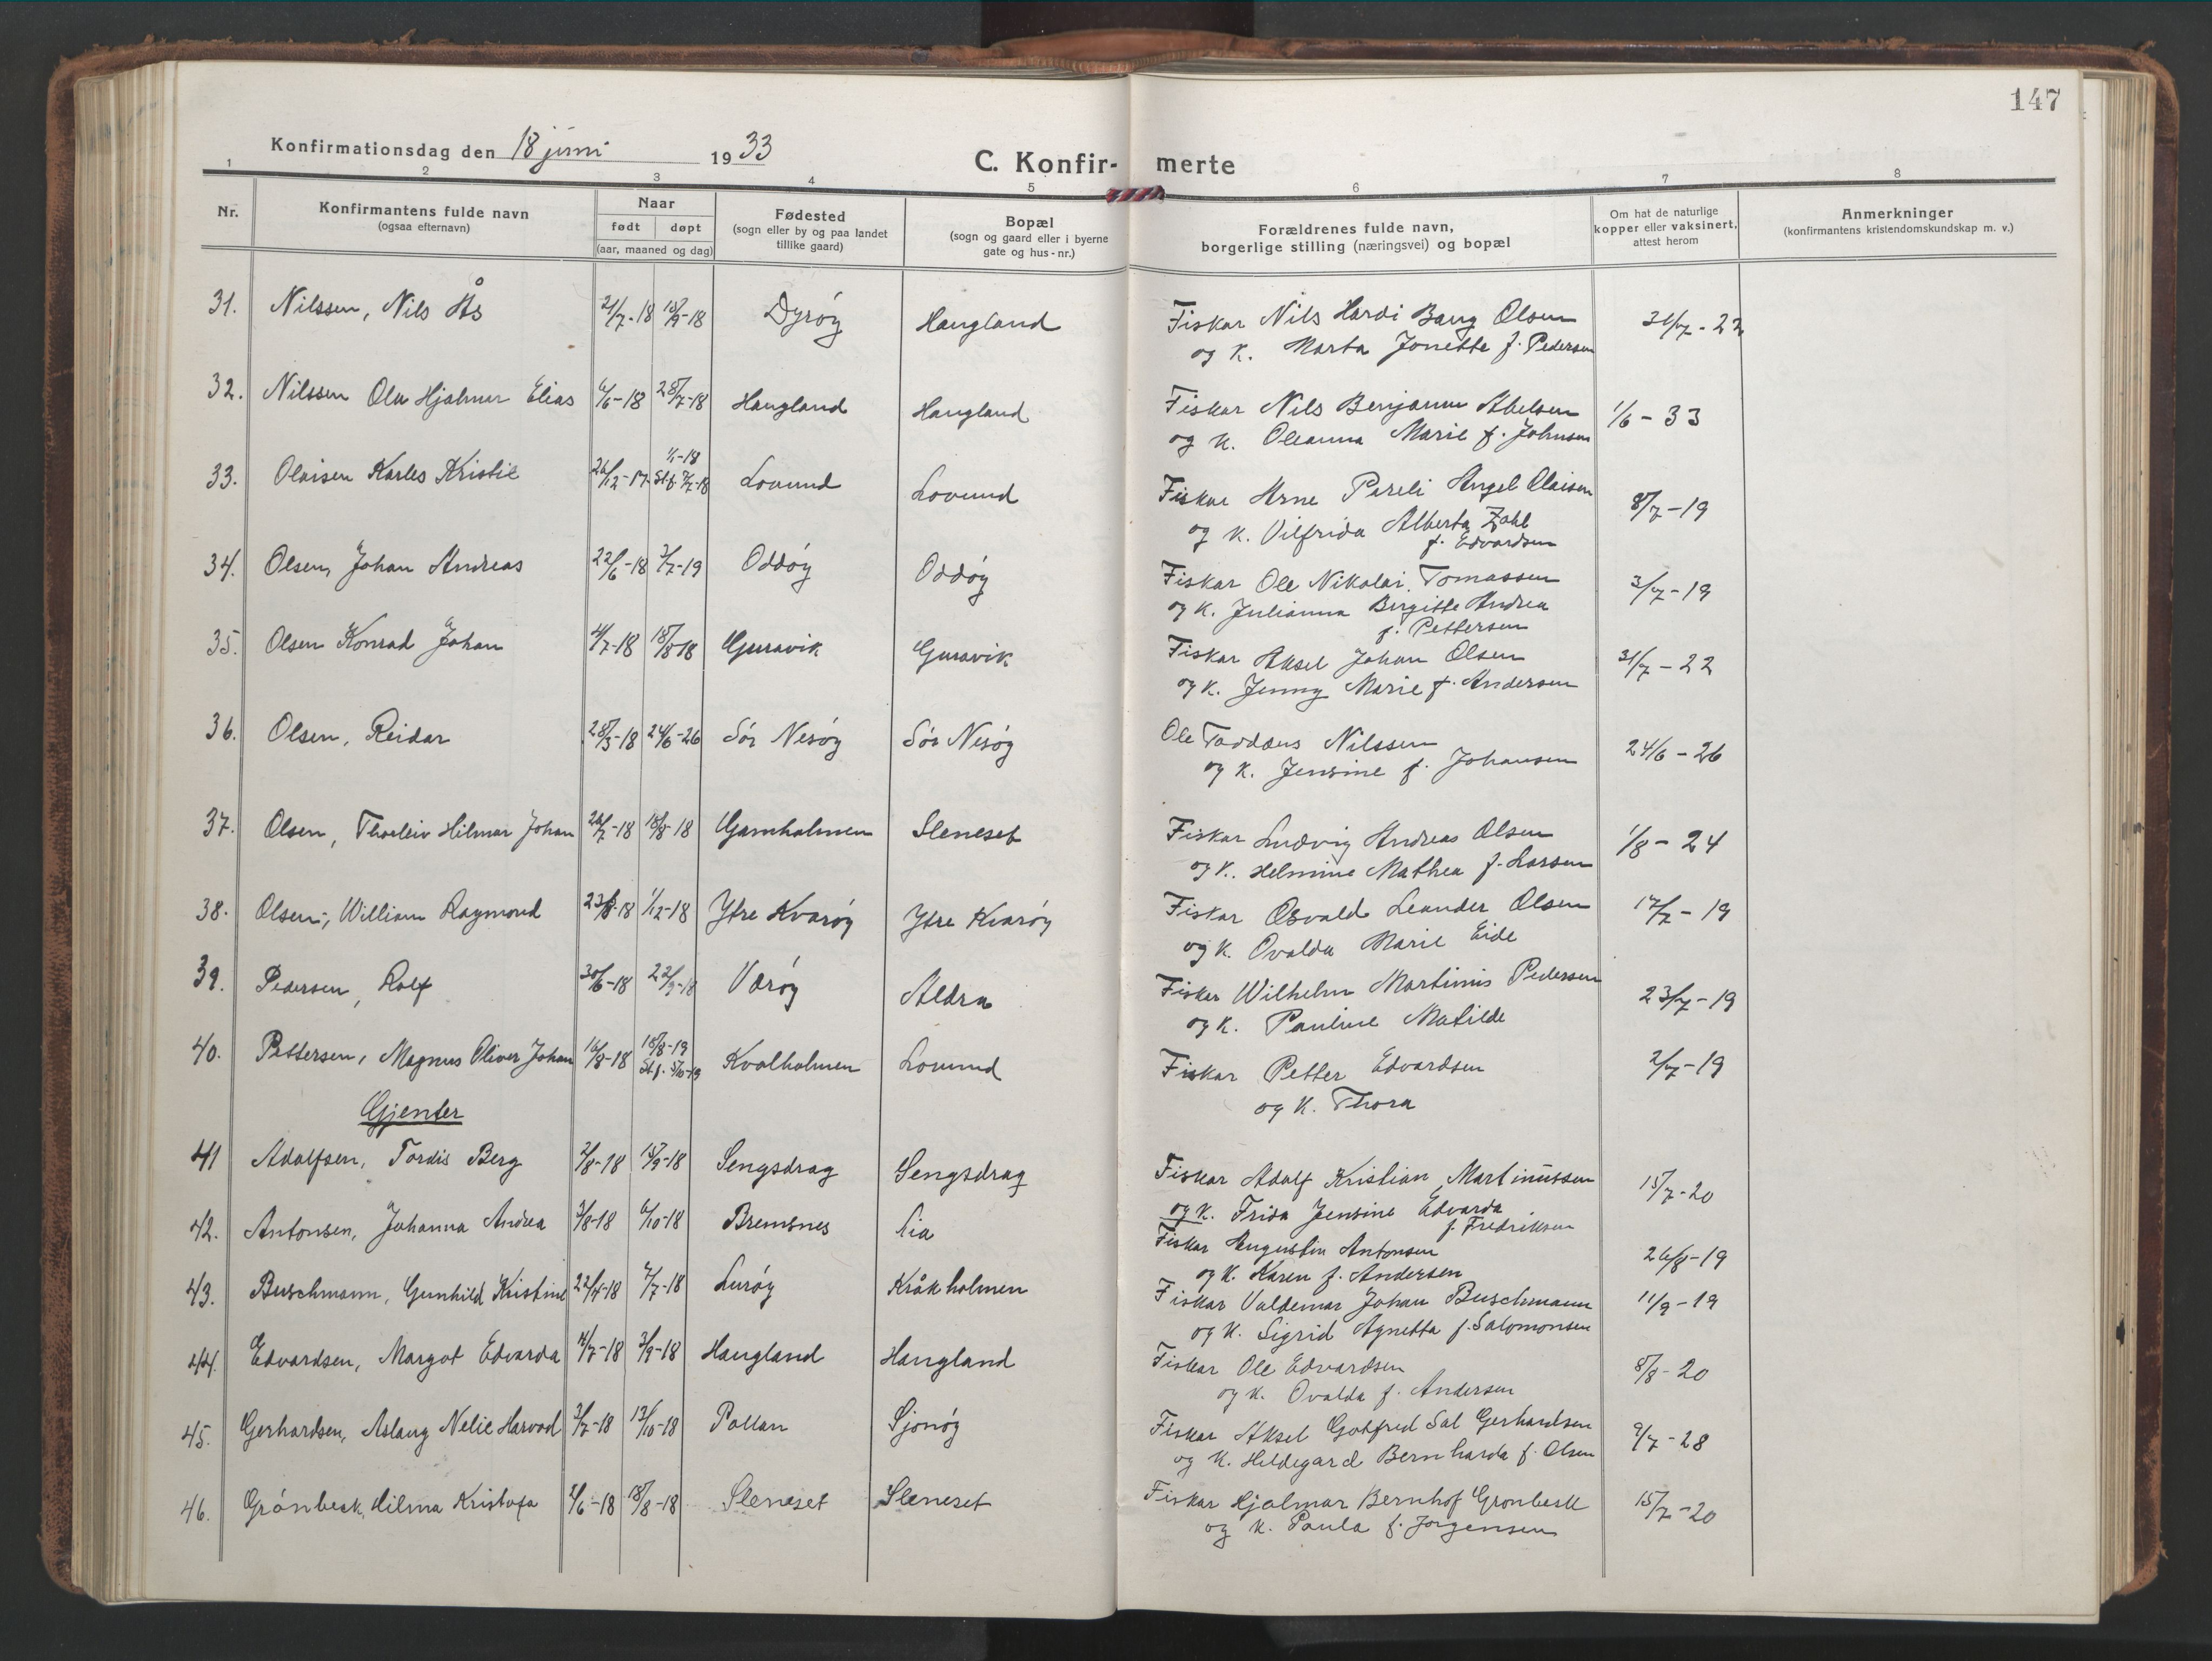 147
Konfirmationsdag den 18 juni 1933
C. Konfirmerte
1 2 3 4 5 6 7 8
Nr.
Konfirmantens fulde navn
(ogsaa efternavn)
Naar
født døpt
(aar, maaned og dag)
Fødested
(sogn eller by og paa landet
tillike gaard)
Bopæl
(sogn og gaard eller i byerne
gate og hus-nr.)
Forældrenes fulde navn,
borgerlige stilling (næringsvei) og bopæl
Om hat de naturlige
kopper eller vaksinert,
attest herom
Anmerkninger
(konfirmantens kristendomskundskap m. v.)
31. Nilssen, Nils Ås 21/7-18 15/9-18 Dyrøy Haugland Fiskar Nils Hardi Bang Olsen 31/7-22
og K. Marta Jonette f. Pedersen
32. Nilssen Ola Hjalmar Elias 6/6-18 28/7-18 Haugland Haugland Fiskar Nils Benjamin Abelsen 1/6-33
og K. Oleanna Marie f. Johnsen
33. Olaisen Karles Kristie 26/12-17 1/1-18 Lovund Lovund Fiskar Arne Pareli Angel Olaisen 8/7-19
St.f. 7/7-18
og K. Vilfrida Alberta Zahl
f. Edvardsen
34. Olsen, Johan Andreas 22/6-18 3/7-19 Oddøy Oddøy Fiskar Ole Nikolai Tomassen 3/7-19
og K. Julianna Birgitte Andrea
f. Pettersen
35. Olsen Konrad Johan 4/7-18 18/8-18 Gursvik Gursvik Fiskar Aksel Johan Olsen 31/7-22
og K. Jenny Marie f. Andersen
36. Olsen, Reidar 28/3-18 24/6-26 Sör Nesøy Sör Nesøy Ole Taddæus Nilssen 24/6-26
og K. Jensine f. Johansen
37. Olsen, Thorleiv Hilmar Johan 28/7-18 18/8-18 Gamholmen Sleneset Fiskar Ludvig Andreas Olsen 1/8-24
og K. Helmine Mathea f. Larsen
38. Olsen, William Raymond 23/8-18 1/12-18 Ytre Kvarøy Ytre Kvarøy Fiskar Osvald Leander Olsen 17/7-19
og K. Ovalda Marie Eide
39. Pedersen, Rolf 30/6-18 22/9-18 Værøy Aldra Fisker Wilhelm Martinus Pedersen 23/7-19
og K. Pauline Matilde
40. Pettersen, Magnus Oliver Johan 16/8-18 18/8-19 Kvalholmen Lovund Fiskar Petter Edvardsen 2/7-19
St.f. 5/10-19
og K. Thora
Gjenter
41 Adolfsen, Tordis Berg 2/8-18 15/9-18 Sengsdrag Sengsdrag Fiskar Adolf Kristian Martinussen 15/7-20
og K. Frida Jensine Edvarda
f. Fredriksen
42. Antonsen, Johanna Andrea 3/8-18 6/10-18 Bremsnes Lia Fiskar Augustin Antonsen 26/8-19
og K. Karen f. Andersen
43. Buschmann, Gunhild Kristine 22/4-18 7/7-18 Lurøy Kråkholmen Fiskar Valdemar Johan Buschmann 11/9-19
og K. Sigrid Agnetta f. Salomonsen
44. Edvardsen, Margot Edvarda 4/7-18 3/9-18 Haugland Haugland Fiskar Ole Edvardsen 8/8-20
og K. Ovalda f. Andersen
45. Gerhardsen, Aslaug Nelie Harvod 3/7-18 13/10-18 Pollan Sjonøy Fiskar Aksel Gotfred Sal Gerhardsen 9/7-28
og K. Hildegard Bernharda f. Olsen
46. Grønbeck, Hilma Kristofa 2/6-18 18/8-18 Sleneset Sleneset Fiskar Hjalmar Bernhof Grønbeck 15/7-20
og K. Paula f. Jørgensen